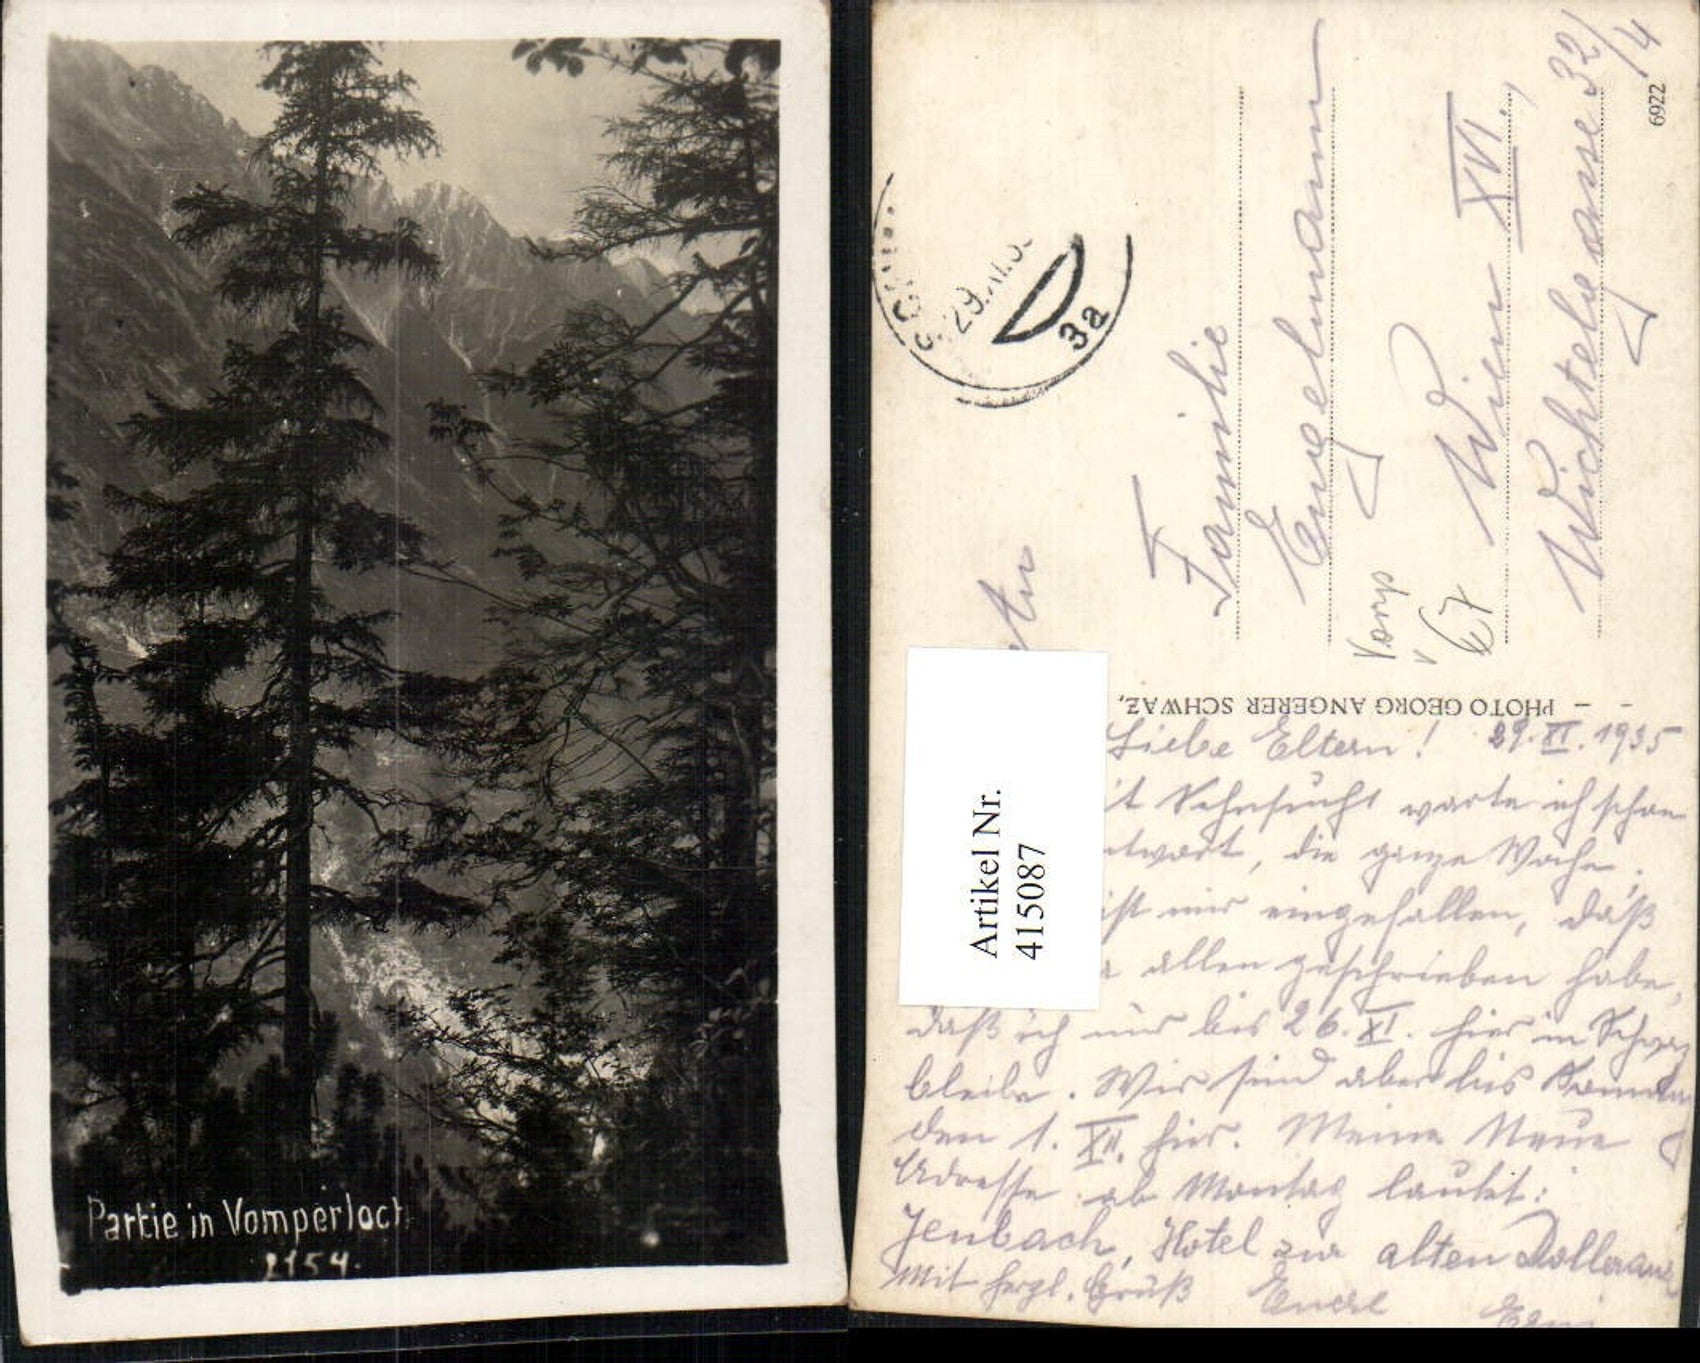 Partie in Vomperloch
2154.
29.XI.3
3a
Familie
Engelmann
Wien XVI.,
Wichtelgasse 32/4
Vomp
V
67
6922
PHOTO GEORG ANGERER SCHWAZ,
Artikel Nr.
415087
Liebe Eltern! 29.XI.1935
it Sehnsucht warte ich schon
twort, die ganze Woche.
ist mir eingefallen, daß
allen geschrieben habe,
daß ich nur bis 26.XI. hier in Schwaz
bleibe. Wir sind aber bis Sonntag
den 1. XII. hier. Meine Neue
Adresse ab Montag lautet:
Jenbach, Hotel zur alten
Mit herzl. Gruß Euere Erni